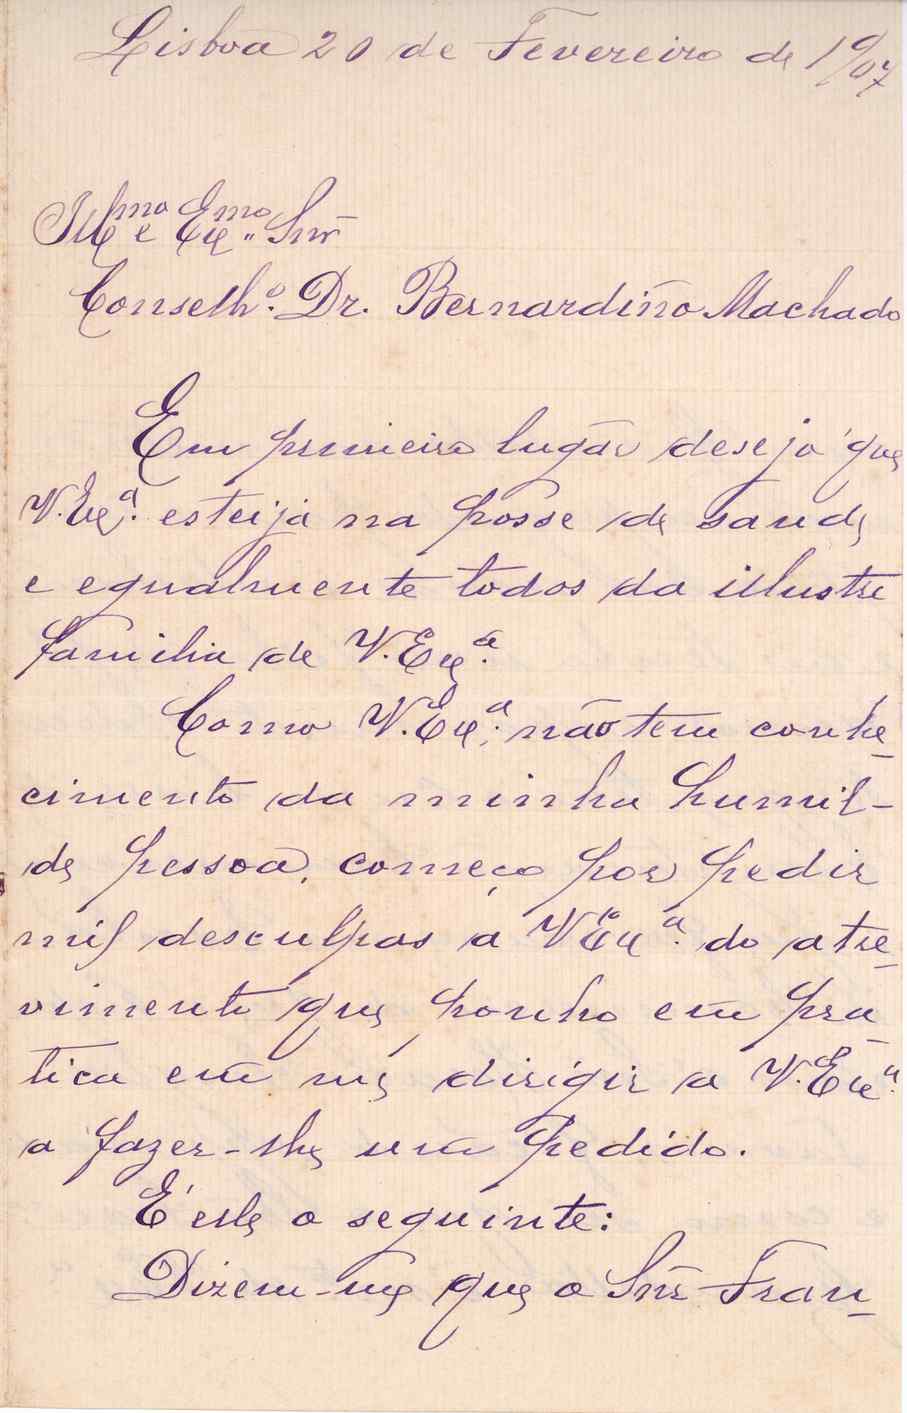 Lisboa 20 de Fevereiro de 1907
Illmo e Exmo Snr
Conselhº. Dr. Bernardino Machado
Em primeiro lugár desejo que
V. Exª. esteija na posse de saude
e egualmente todos da illustre
familia de V. Exª.
Como V. Exª. não tem conhe-
cimento da minha humil-
de pessoa, começo por pedir
mil desculpas a V Exª. do atre-
vimento que ponho em pra-
tica em me dirigir a V. Exª.
a fazer-lhe um pedido.
É este o seguinte:
Dizem-me que o Snr Fran-